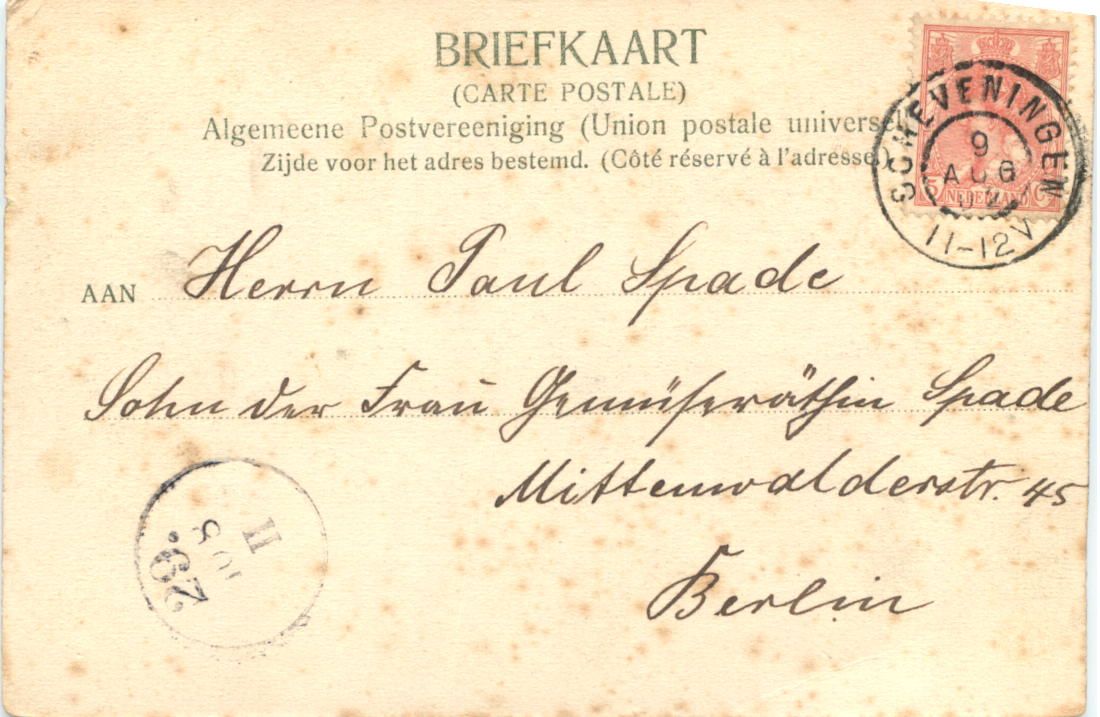 BRIEFKAART
(CARTE POSTALE)
Algemeene Postvereeniging (Union postale universel
Zijde voor het adres bestemd. (Côté réservé à l'adresse)
SCHEVENINGEN
9
AUG
02
11-12V
5 NEDERLAND C
AAN Herrn Paul Spade
Sohn der Frau Gemüseräthin Spade
Mittenwalderstr. 45
Berlin
11
8
29.